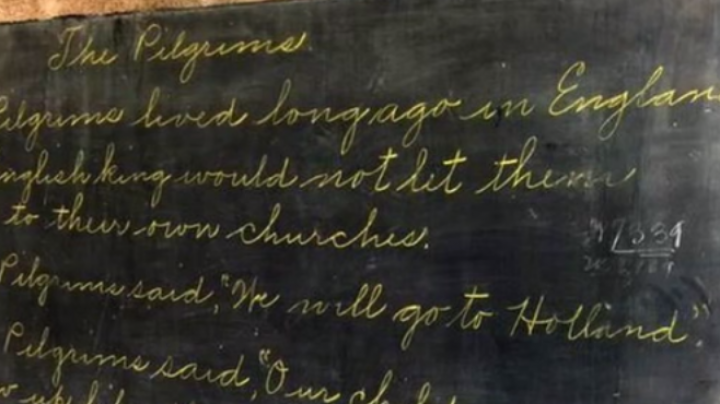 The Pilgrims
Pilgrims lived long ago in Englan
nglish king would not let them
to their own churches.
Pilgrims said, "We will go to Holland".
Pilgrims said, "Our